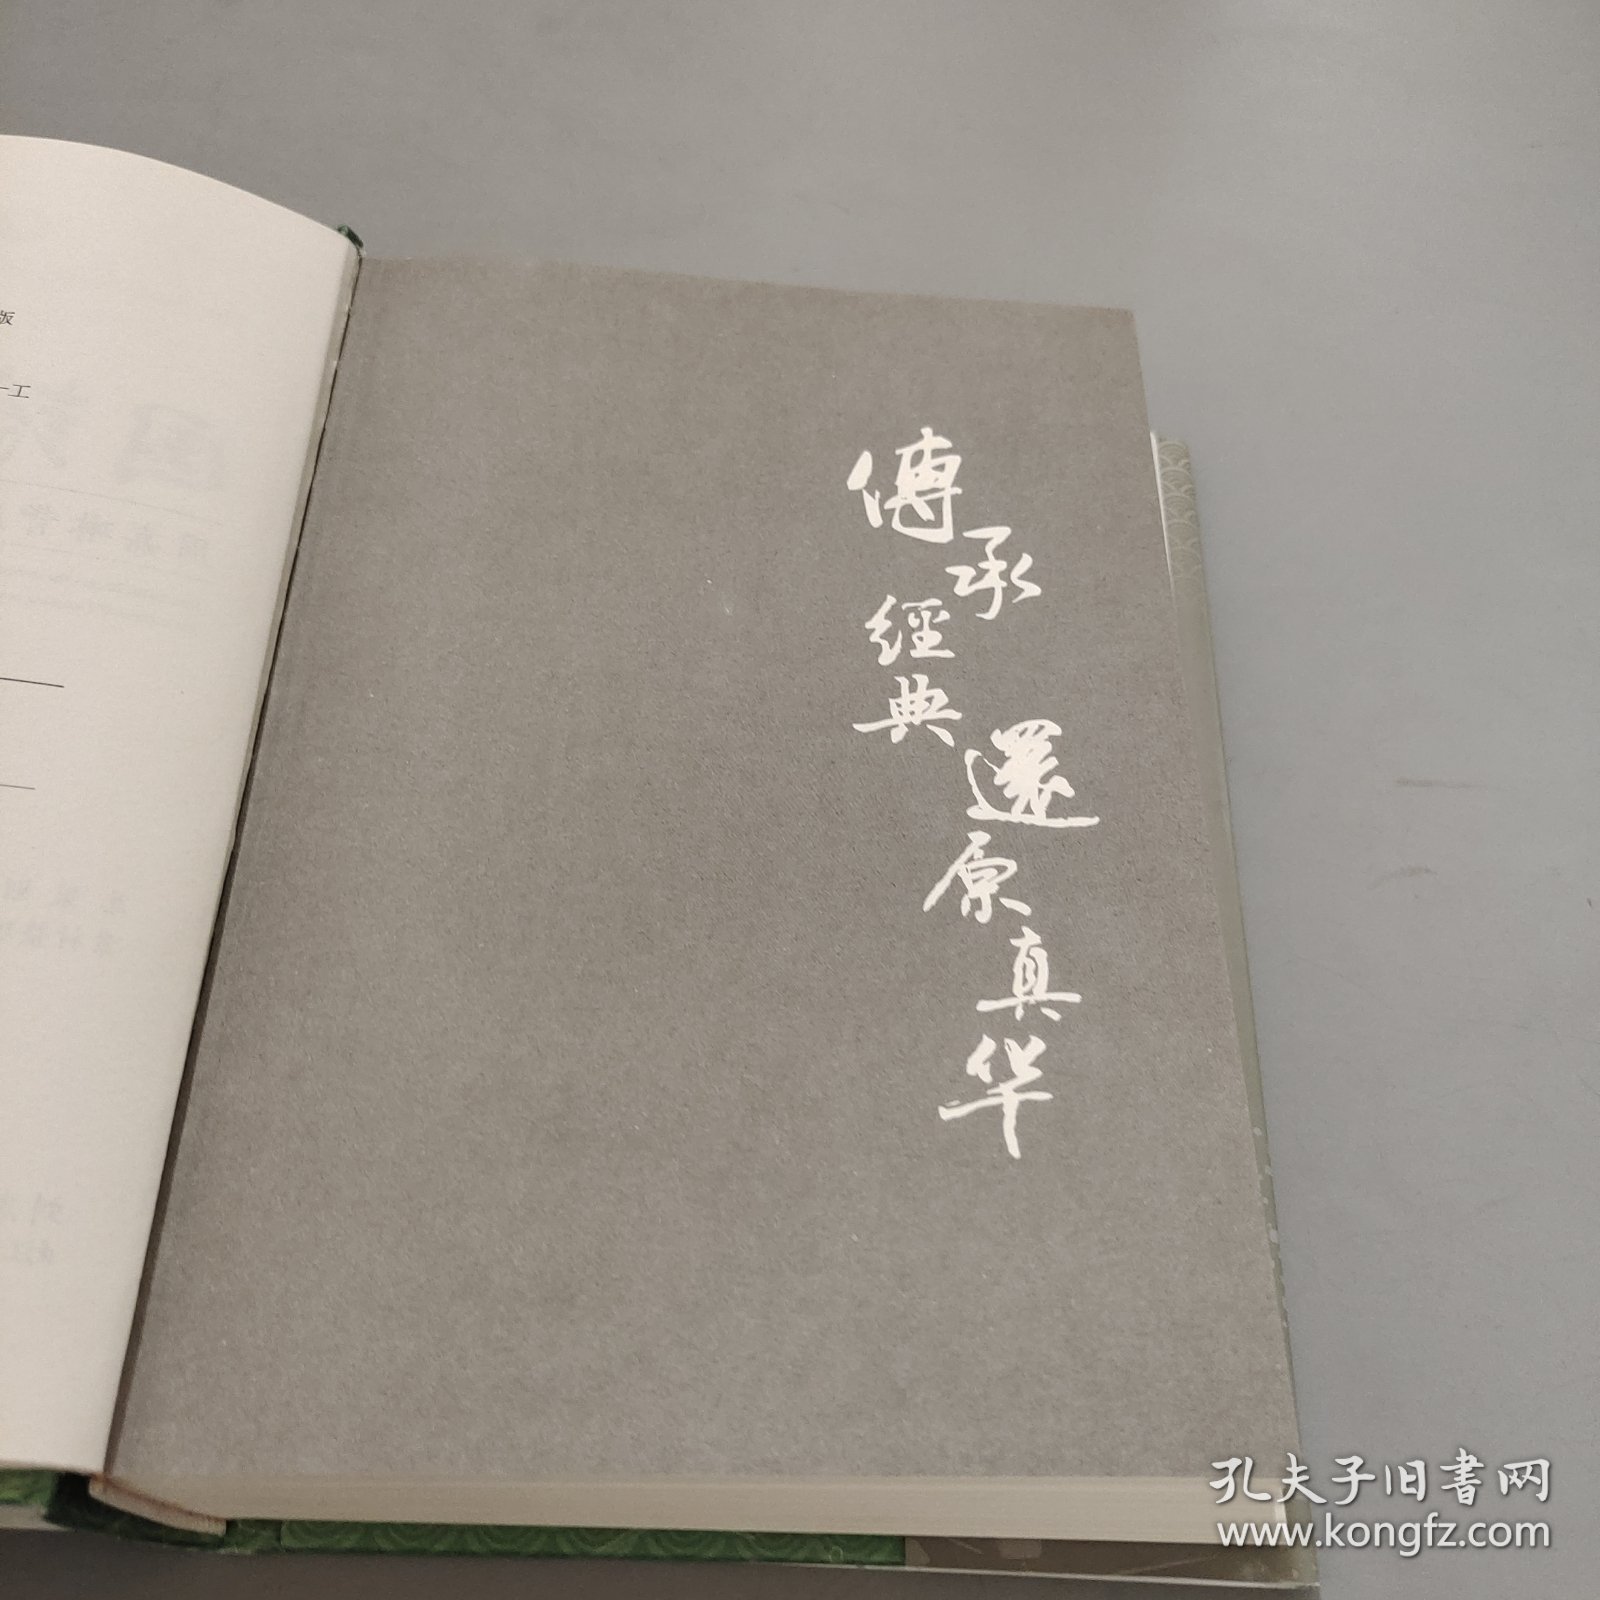 版
一工
傳承
經典
還原真华
孔夫子旧书网
www.kongfz.com